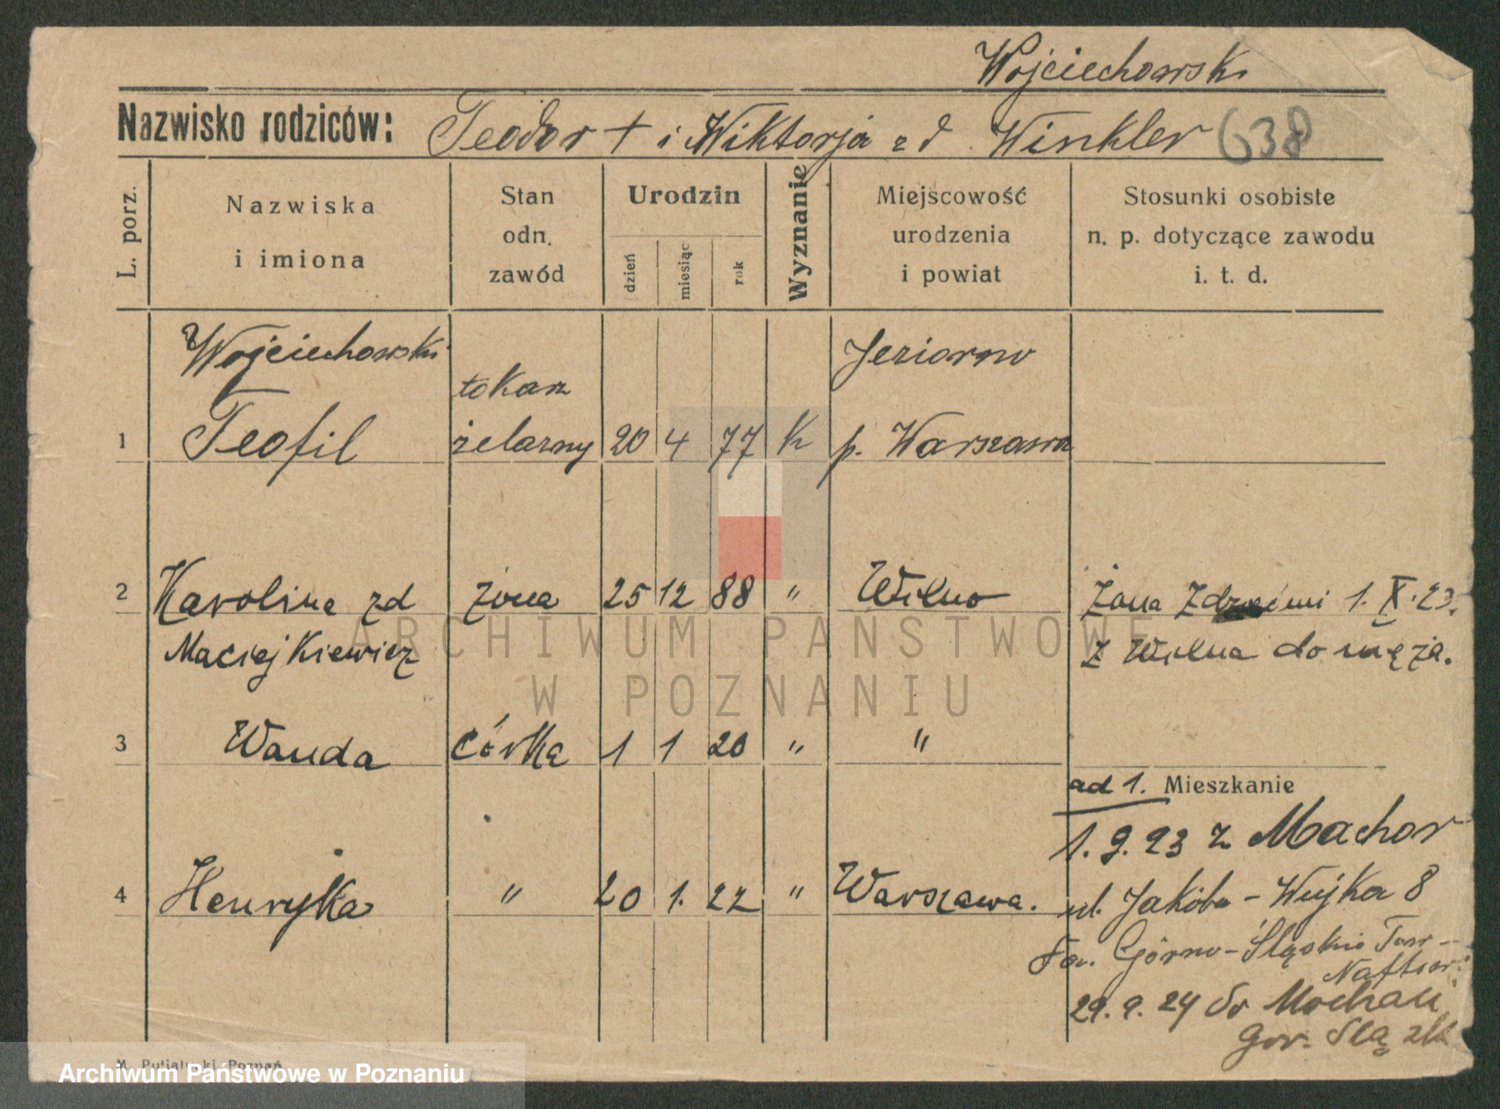 Wojciechowski
Nazwisko rodziców: Teodor + i Wiktorja zd Winkler 638
L. porz.
Nazwiska
i imiona
Stan
odn.
zawód
Urodzin
dzień
miesiąc
rok
Wyznanie
Miejscowość
urodzenia
i powiat
Stosunki osobiste
n. p. dotyczące zawodu
i. t. d.
Wojciechowski Jeziorno
tokarz
1 Teofil żelazny 20 4 77 K p. Warszawa
2 Karolina zd żona 25 12 88 " Wilno Żona z dziećmi 1. X. 23.
Maciejkiewicz z Wilna do męża.
3 Wanda córka 1 1 20 " "
ad 1. Mieszkanie
1. 9. 23 z Machor
4 Henryka " 20 1. 22 " Warszawa. ul. Jakóba-Wujka 8
Górno-Śląskie Tow-
Naftow.
29. 9. 24 do
Gór. Ślą
M. Putiatycki, Poznań
ARCHIWUM PAŃSTWOWE
W POZNANIU
Archiwum Państwowe w Poznaniu